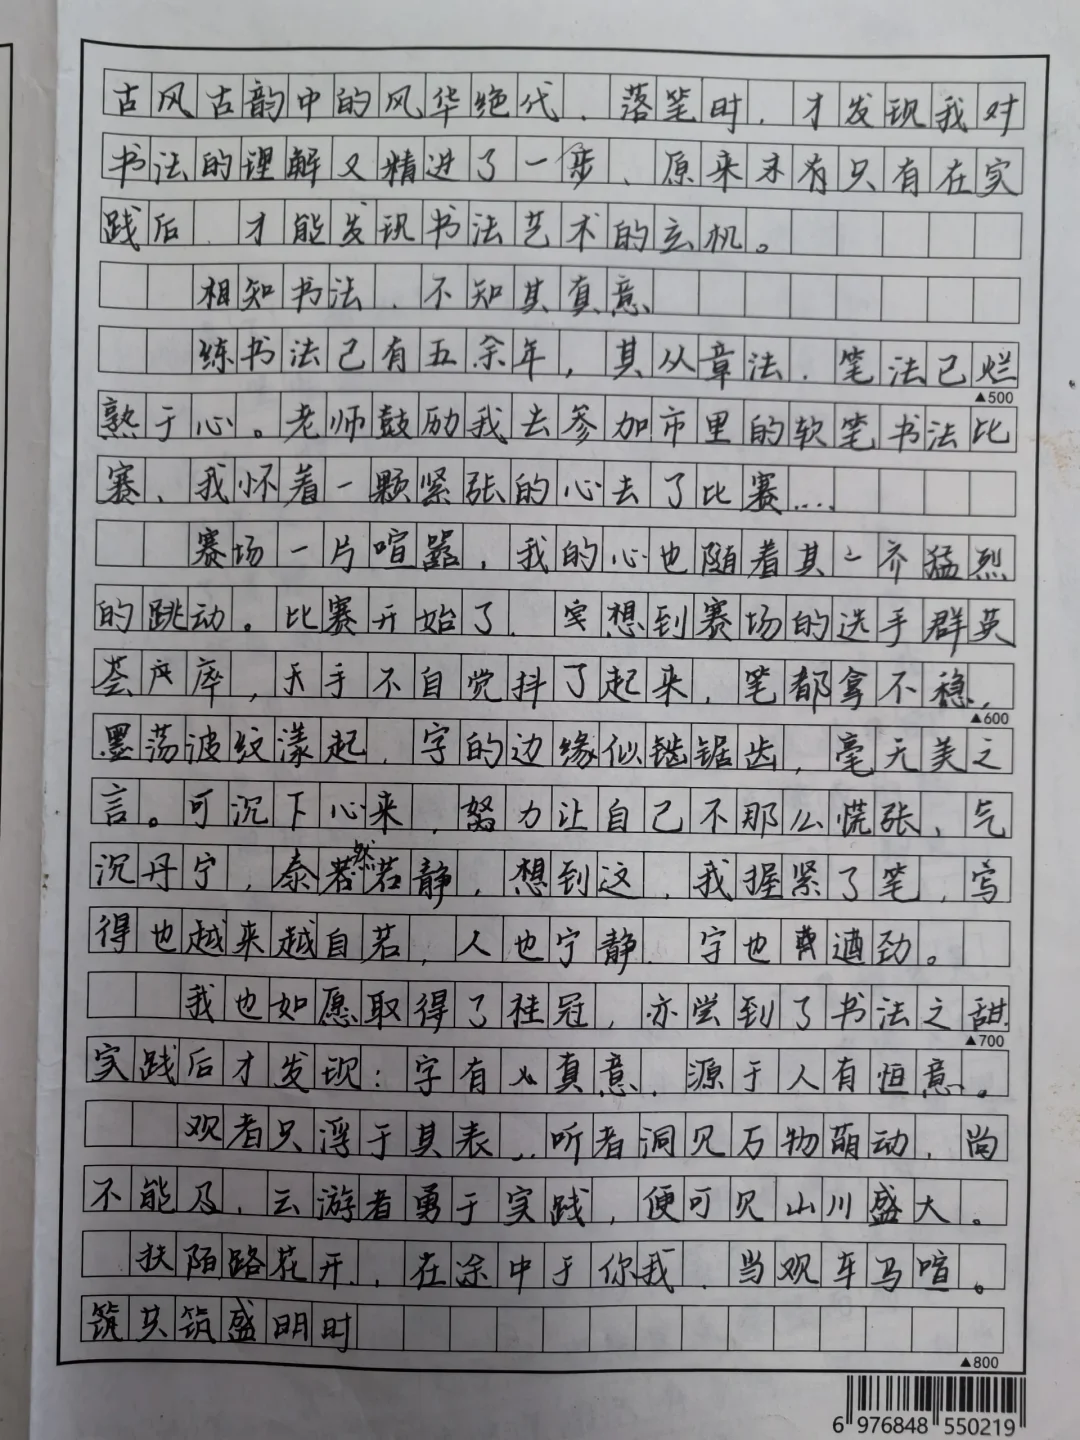 古风古韵中的风华绝代、落笔时，才发现我对
书法的理解又精进了一步、原来未有只有在实
践后、才能发现书法艺术的玄机。
相知书法、不知其真意
练书法已有五余年，其从章法、笔法已烂
▲500
熟于心。老师鼓励我去参加市里的软笔书法比
赛、我怀着一颗紧张的心去了比赛....
赛场一片喧嚣，我的心也随着其一齐猛烈
的跳动。比赛开始了、想到赛场的选手群英
荟，手不自觉抖了起来，笔都拿不稳，
▲600
墨荡波纹漾起，字的边缘似锯齿，毫无美之
言。可沉下心来，努力让自己不那么慌张、气
沉丹宁，泰然若静，想到这，我握紧了笔，写
得也越来越自若，人也宁静、字也遒劲。
我也如愿取得了桂冠，亦尝到了书法之甜.
▲700
实践后才发现：字有真意、源于人有恒意。
观者只浮于其表、听者洞见万物萌动，尚
不能及、云游者勇于实践，便可见山川盛大。
扶陌路花开、在途中于你我、当观车马喧。
筑共筑盛明时
▲800
6 976848 550219